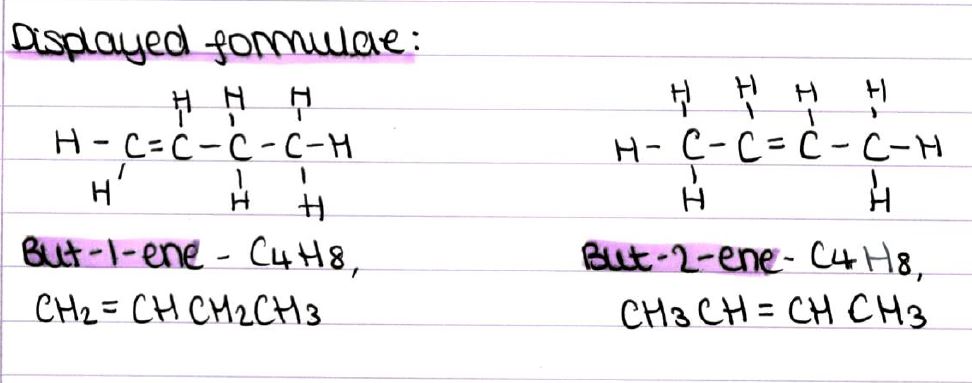 Displayed formulae:
H H H
H - C = C - C - C - H
H H H
H H H H
H - C - C = C - C - H
H H
But-1-ene - C4H8,
CH2 = CH CH2CH3
But-2-ene - C4H8,
CH3 CH = CH CH3